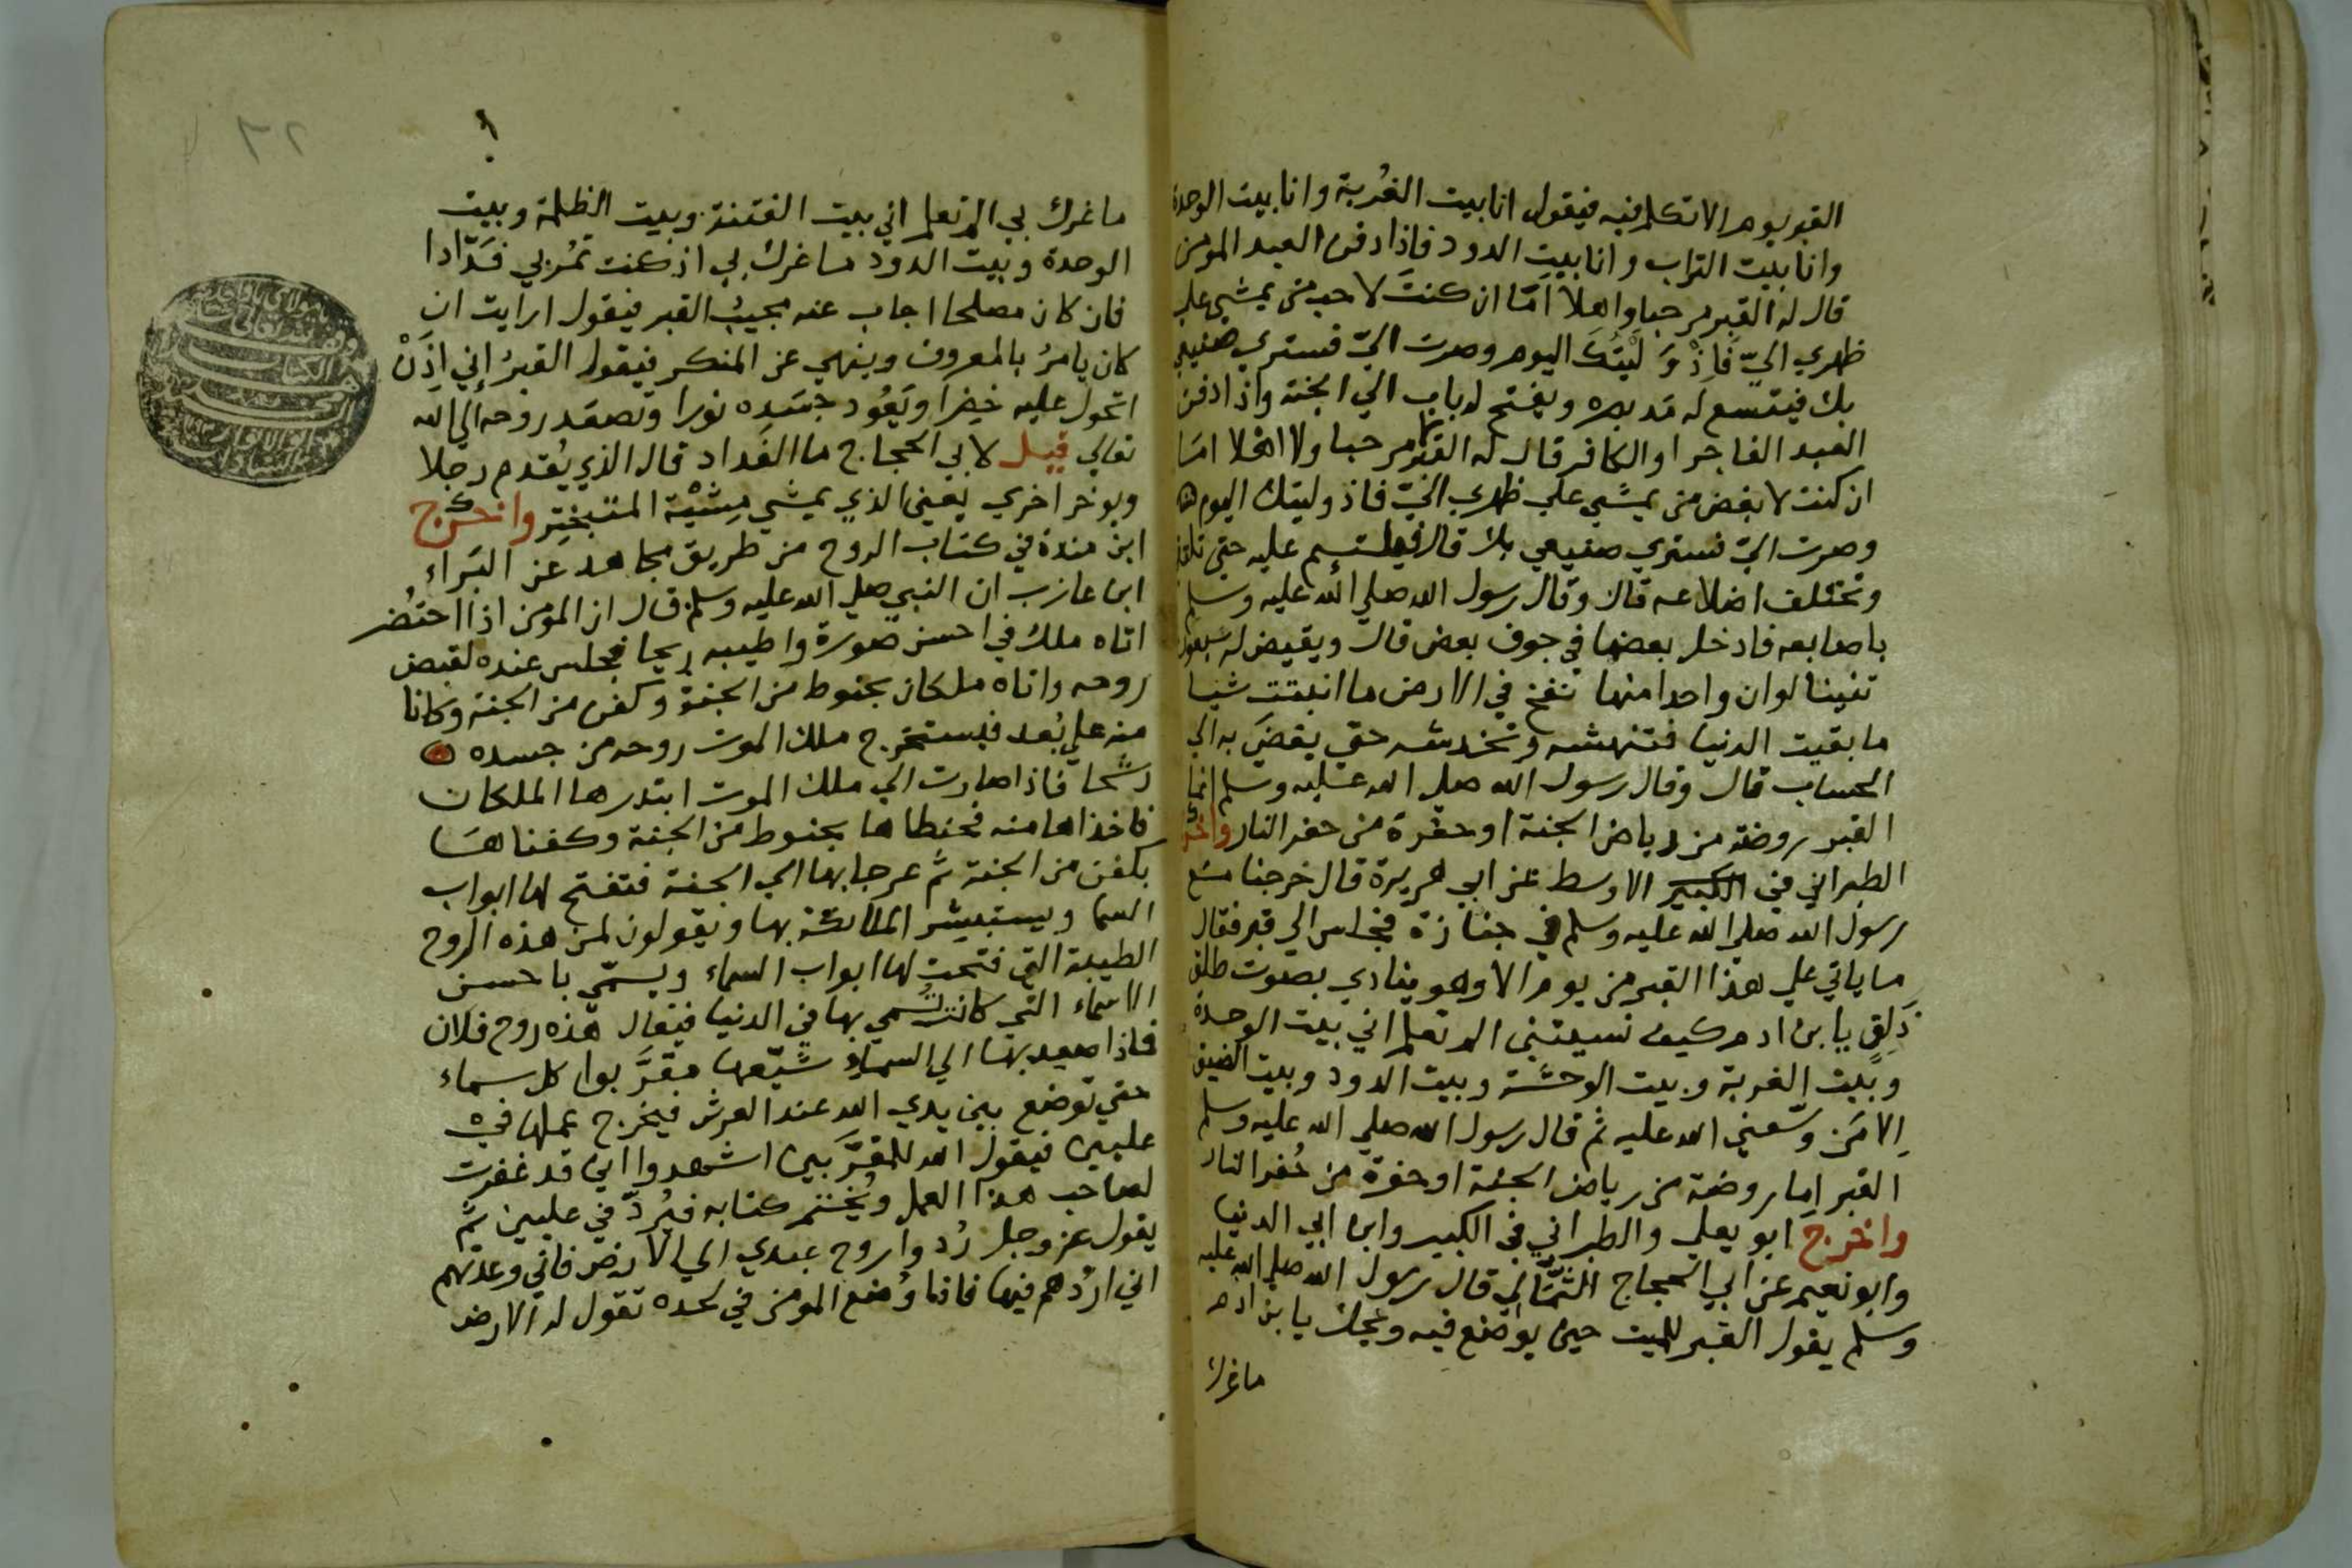 القبر يوم الا تكلم فيه فيقول انا بيت الغُربة وانا بيت الوحدة
وانا بيت التراب وانا بيت الدود فاذا دفن العبد المومن
قال له القبر مرحبا واهلا اَمّا ان كنتَ لاحب من يمشي علي
ظهري اليّ فَاِذْ وَلِيْتُكَ اليوم وصرت اليّ فستري صنيعي
بك فيتسع له مَد بصره ويفتح له باب الي الجنة واذا دفن
العبد الفاجر او الكافر قال له القبر لا مرحبا ولا اهلا امَا
ان كنت لابغض من يمشي علي ظهري اليّ فاذ وليتك اليوم
وصرت اليّ فستري صنيعي بك قال فيلتئم عليه حتي تلتقي
وتختلف اضلاعه قال وقال رسول الله صلي الله عليه وسلم
باصابعه فادخل بعضها في جوف بعض قال ويقيض له سبعون
تنينا لوان واحدا منها نفخ في الارض ما انبتت شيا
ما بقيت الدنيا فتنهشه وتخدشه حتي يفضَي به الي
الحساب قال وقال رسول الله صلي الله عليه وسلم انما
القبر روضة من رياض الجنة او حفرة من حفر النار واخرج
الطبراني في الكبير الاوسط عن ابي هريرة قال خرجنا مع
رسول الله صلي الله عليه وسلم في جنازة فجلس الي قبر فقال
ما ياتي علي هذا القبر من يوم الا وهو ينادي بصوت طلق
ذَلِقٍ يا بن ادم كيف نسيتني الم تعلم اني بيت الوحدة
وبَيت الغربة وبيت الوحشة وبيت الدود وبيت الضيق
اِلا مَن وسّعني الله عليه ثم قال رسول الله صلي الله عليه وسلم
القبر اِما روضة من رياض الجنة او حفرة من حُفر النار
واخرجَ ابو يعلي والطبراني في الكبير وابن ابي الدنيا
وابو نعيم عن ابي الحجاج الثُمَّالي قال رسول الله صلي الله عليه
وسلم يقول القبر للميت حين يوضع فيه ويحك يا بن ادم
ما غرك
٣٢
ما غرك بي الم تعلم اني بيت الفتنة وبيت الظلمة وبيت
الوحدة وبيت الدود ما غرك بي اذ كنت تمُر بي فَدّادا
فان كان مصلحا اجاب عنه مجيبُ القبر فيقول ارايت ان
كان يامرُ بالمعروف وينهي عن المنكر فيقول القبرُ إني اِذَنْ
اتحول عليه خضِرا ويَعُود جسَده نورا وتصعَد روحه الي الله
تعالي قيل لابي الحجاج ما الفَداد قال الذي يُقدم رجلا
ويوخر اخري يعني الذي يمشي مِشْيَة المتبخِتر واخرج
ابن مندة في كتاب الروح من طريق مجاهد عن البَراء
ابن عازب ان النبي صلي الله عليه وسلم قال ان المومن اذا احتُضر
اتاه ملك في احسن صورة واطيبه ريحا فجلس عنده لقبض
روحه واتاه ملكان بحنوط من الجنة وكفن من الجنة وكانا
منه علي بُعد فيستخرج ملك الموت روحه من جسده
رشَحا فاذا صارت الي ملك الموت ابتدرها الملكان
فاخذاها منه فحنطاها بحنوط من الجنة وكفناهَا
بكفن من الجنة ثم عرجا بها الي الجنة فتفتح لها ابواب
السما ويستبشر الملائكة بها ويقولون لمن هذه الروح
الطيبة التي فتحت لها ابواب السماء ويسمّي باحسن
الاسماء التي كانت تُسمي بها في الدنيا فيقال هَذه روح فلان
فاذا صعد بها الي السماء شَيّعها مقرَّبوا كل سماء
حتي توضع بين يدي الله عند العرش فيخرج عملها في
عليين فيقول الله للمقرَّبين اشهدوا اني قد غفرت
لصاحب هذا العمل ويُختم كتابه فيُردّ في عليين ثم
يقول عز وجل رُدوا روح عبدي الي الارض فاني وعدتهم
اني اردُهم فيها فاذا وُضع المومن في لحده تقول له الارض